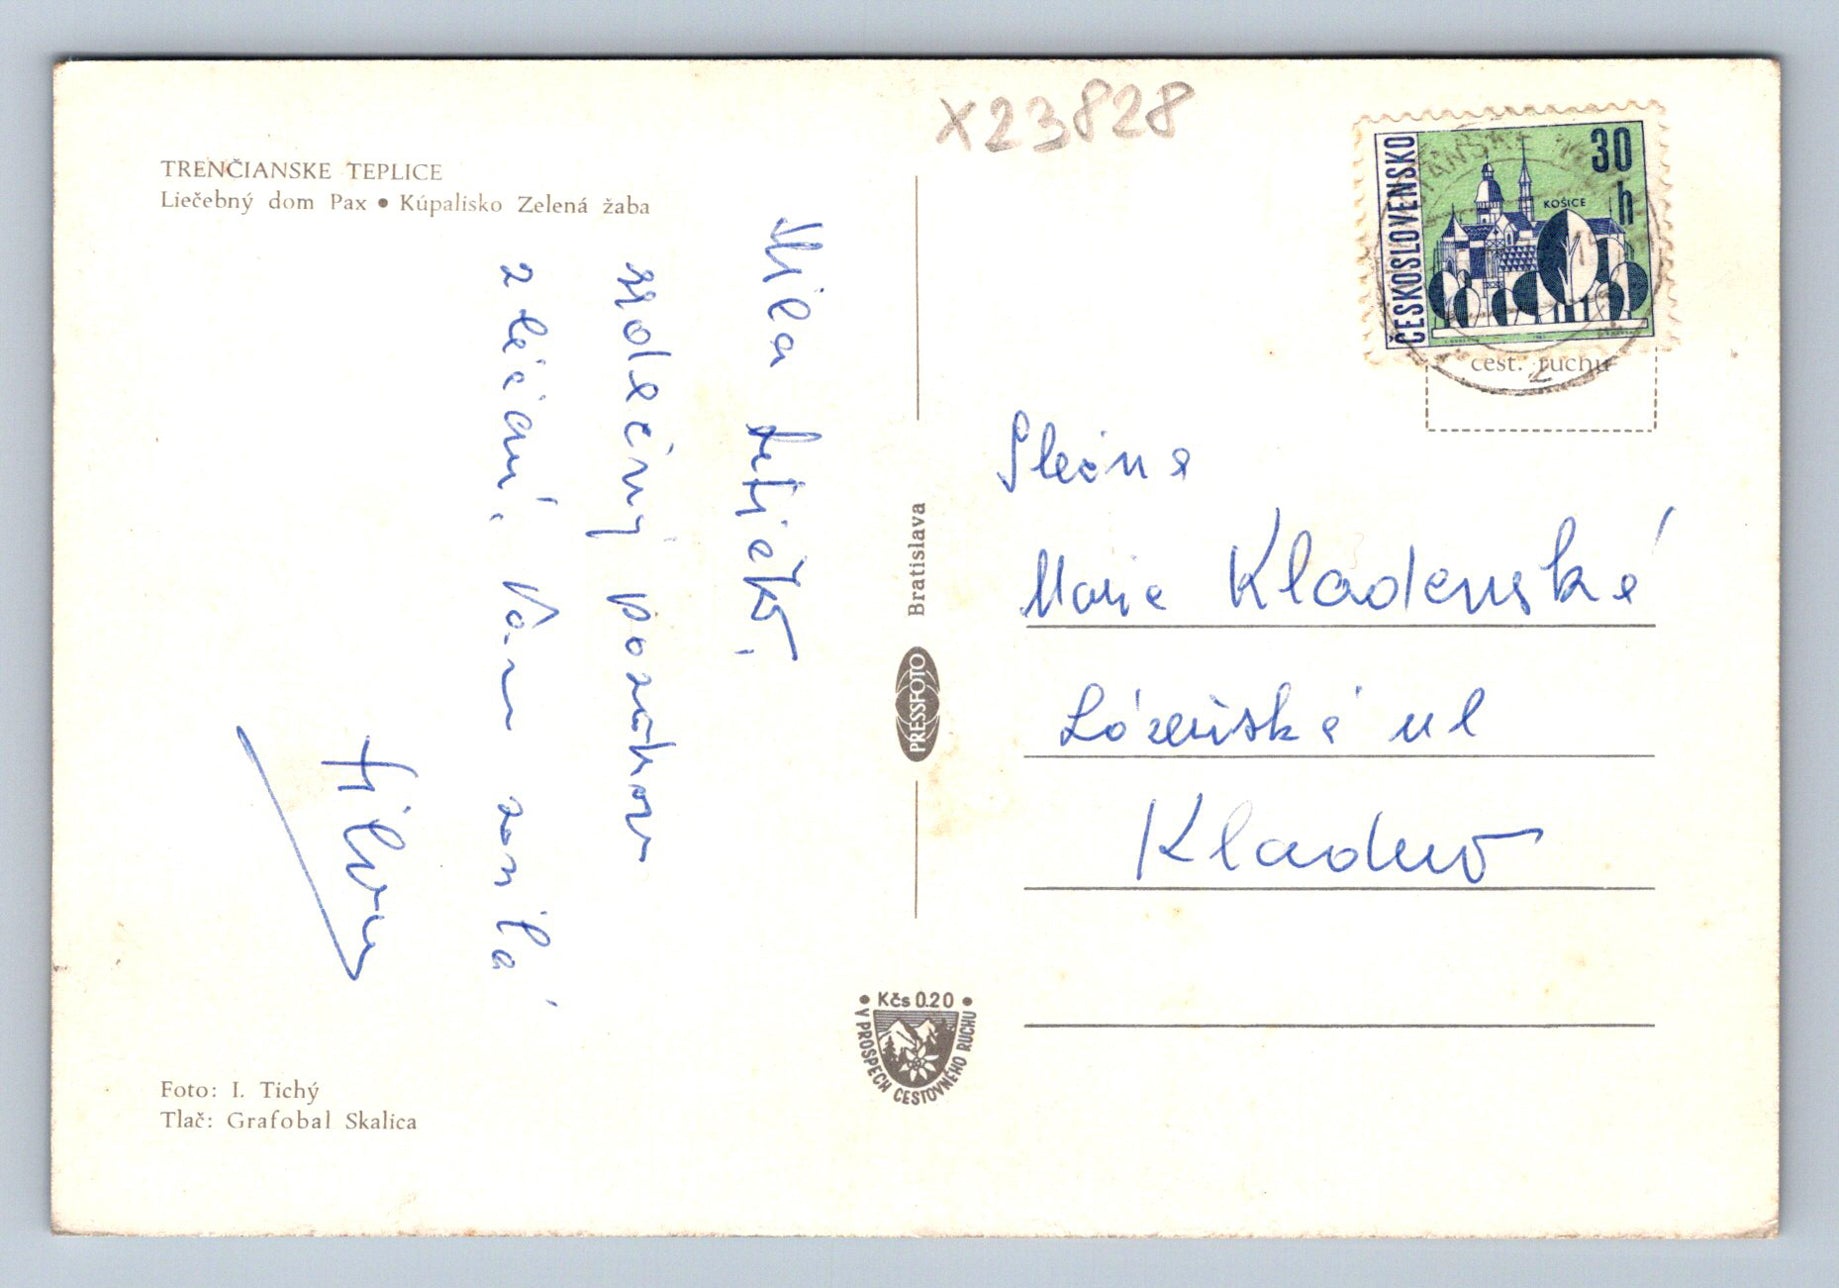 X23828
TRENČIANSKE TEPLICE
Liečebný dom Pax • Kúpalisko Zelená žaba
ČESKOSLOVENSKO
30
h
KOŠICE
cest. ruchu
2
Milá tetičko,
srdečný pozdrav
z léčení, Vám zasílá
Slečna
Marie Kladenská
Kladno
PRESSFOTO Bratislava
• Kčs 0.20 •
V PROSPECH CESTOVNÉHO RUCHU
Foto: I. Tichý
Tlač: Grafobal Skalica